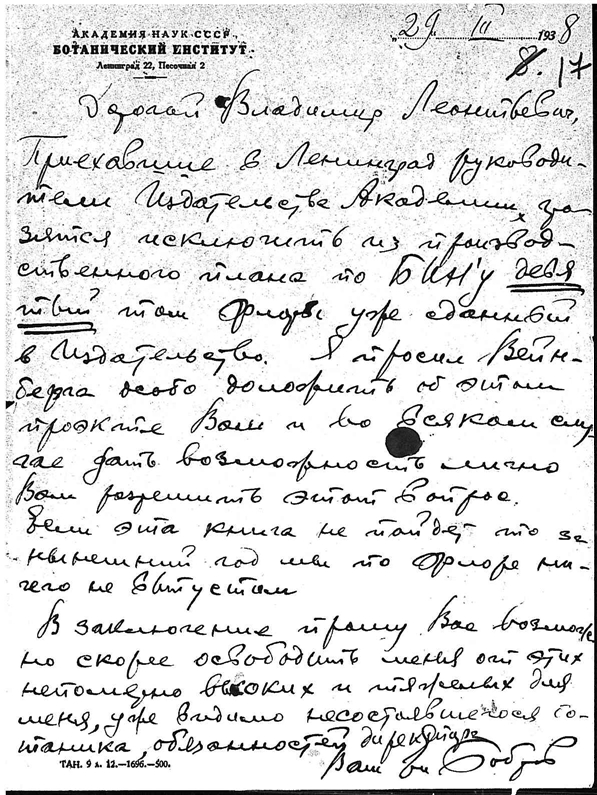 АКАДЕМИЯ НАУК СССР
БОТАНИЧЕСКИЙ ИНСТИТУТ
Ленинград 22, Песочная 2
„29“ III 1938
8. 17
Дорогой Владимир Леонтьевич,
Приехавшие в Ленинград руководи-
тели Издательства Академии, гро-
зятся исключить из производ-
ственного плана по БИН'у девя
тый том Флоры уже сданный
в Издательство. Я просил Вейн-
берга особо доложить об этом
проэкте Вам и во всяком слу-
чае дать возможность лично
Вам разрешить этот вопрос.
Если эта книга не пойдет то за
нынешний год мы по флоре ни-
чего не выпустим
В заключение прошу Вас возмож
но скорее освободить меня от этих
непомерно высоких и тяжелых для
меня, уже видимо несостоявшегося бо-
таника, обязанностей директора
Ваш Бобров
ТАН. 9 л. 12.—1696.—500.